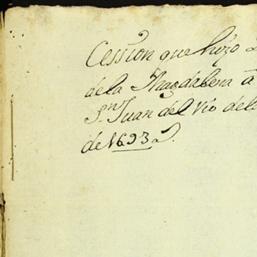 Cession que hizo
dela Magdalena à
S.n Juan del Rio del
de 1693